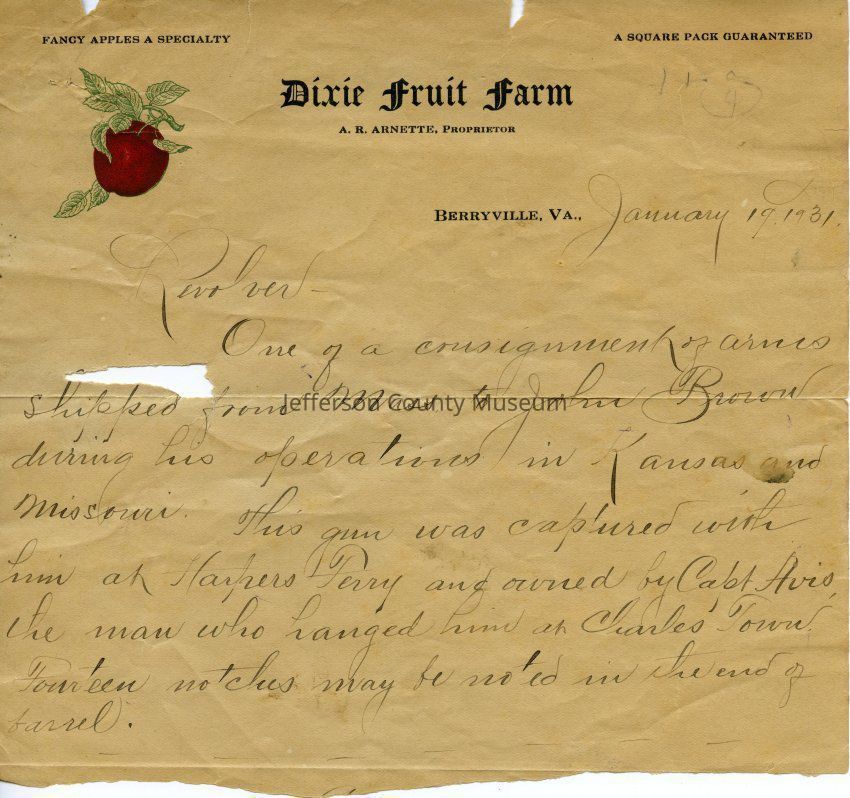 FANCY APPLES A SPECIALTY
A SQUARE PACK GUARANTEED
Dixie Fruit Farm
A. R. ARNETTE, PROPRIETOR
BERRYVILLE, VA., January 19, 1931.
Revolver -
One of a consignment of arms
shipped from Mass to John Brown
Jefferson County Museum
during his operations in Kansas and
Missouri. This gun was captured with
him at Harpers Ferry and owned by Capt Avis,
the man who hanged him at Charles Town.
Fourteen notches may be noted in the end of
barrel.